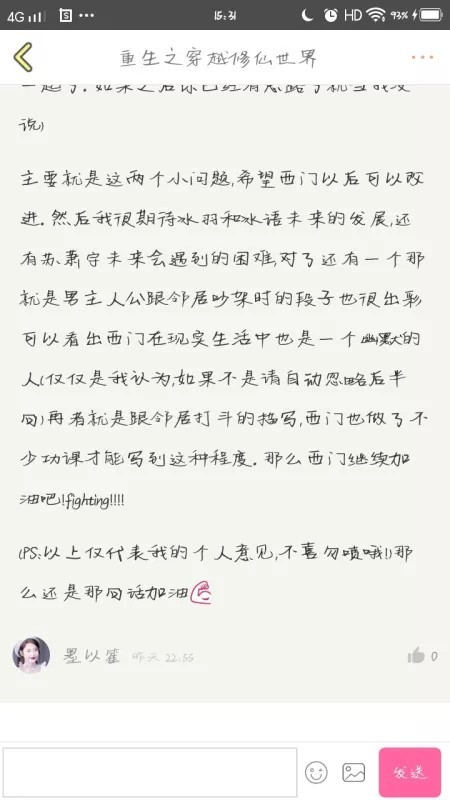 4G 15:31 HD 93%
重生之穿越修仙世界
一起了.如果之后你已经有思路了就当我没
说)
主要就是这两个小问题,希望西门以后可以改
进.然后我很期待水羽和水语未来的发展,还
有苏萧宁未来会遇到的困难,对了还有一个那
就是男主人公跟邻居吵架时的段子也很出彩
可以看出西门在现实生活中也是一个幽默的
人(仅仅是我认为,如果不是请自动忽略后半
句)再者就是跟邻居打斗的描写,西门也做了不
少功课才能写到这种程度.那么西门继续加
油吧!fighting!!!!
(PS:以上仅代表我的个人意见,不喜勿喷哦!)那
么还是那句话加油
墨以笙 昨天 22:56 0
发送